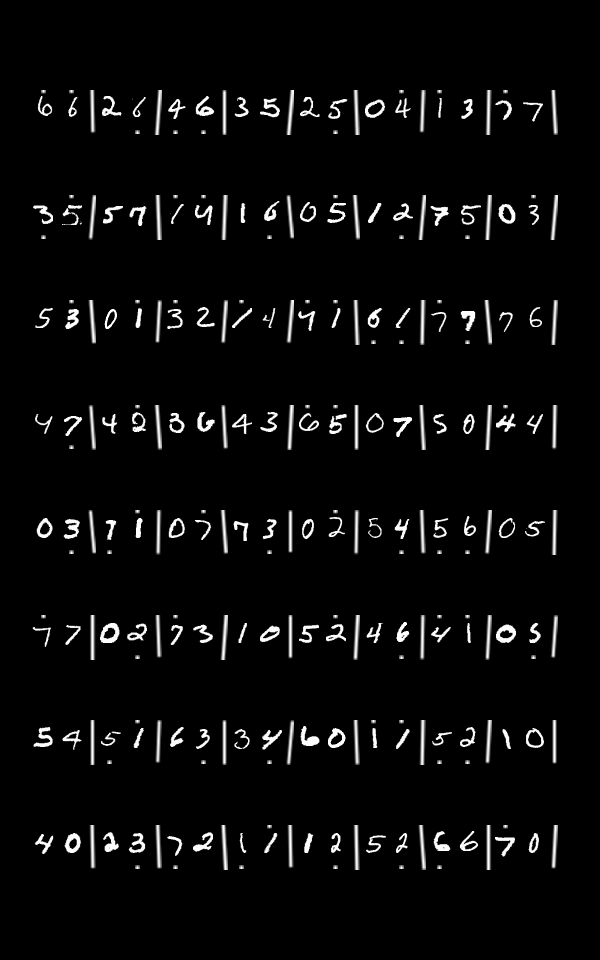 6 6 | 2 6 | 4 6 | 3 5 | 2 5 | 0 4 | 1 3 | 7 7 |
3 5 | 5 7 | 1 4 | 1 6 | 0 5 | 1 2 | 7 5 | 0 3 |
5 3 | 0 1 | 3 2 | 1 4 | 4 1 | 6 1 | 7 7 | 7 6 |
4 7 | 4 2 | 3 6 | 4 3 | 6 5 | 0 7 | 5 0 | 4 4 |
0 3 | 7 1 | 0 7 | 7 3 | 0 2 | 5 4 | 5 6 | 0 5 |
7 7 | 0 2 | 7 3 | 1 0 | 5 2 | 4 6 | 4 1 | 0 5 |
5 4 | 5 1 | 6 3 | 3 4 | 6 0 | 1 1 | 5 2 | 1 0 |
4 0 | 2 3 | 7 2 | 1 1 | 1 2 | 5 2 | 6 6 | 7 0 |